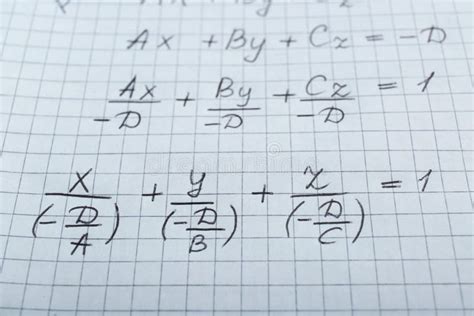 Ax + By + Cz = -D
Ax/-D + By/-D + Cz/-D = 1
x/(-D/A) + y/(-D/B) + z/(-D/C) = 1